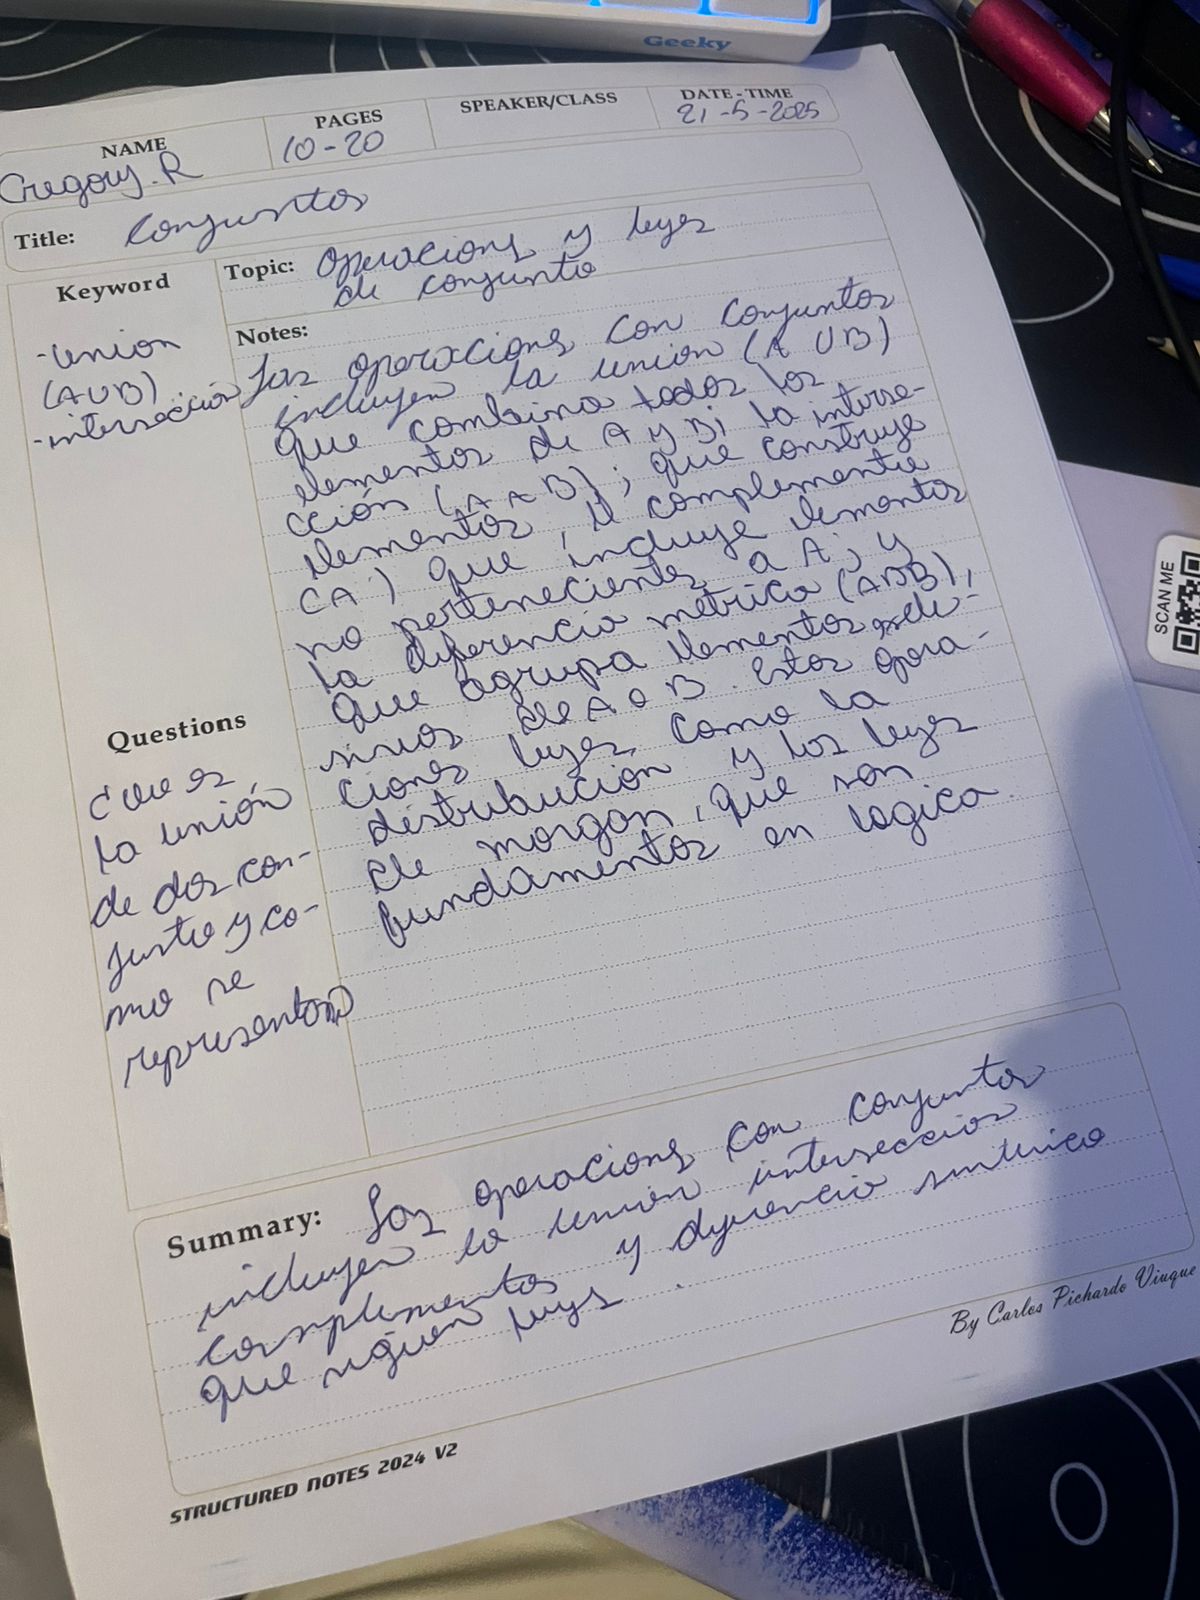 Geeky
NAME
Gregory. R
PAGES
10-20
SPEAKER/CLASS
DATE-TIME
21-5-2025
Title: Conjuntos
Keyword
-union
(AUB)
-intersección
Topic: Operacions y leyes
de conjunto
Notes:
Las operacions con conjuntos
incluyen la union (A U B)
que combina todos los
elementos de A y B; la interse-
cción (A ∧ B); que construye
elementos, el complemento
(A') que incluye elementos
no pertenecientes a A; y
la diferencia metrica
que agrupa elementos
de A o B. Estas opera-
ciones leyes, como la
distribución y los leyes
de morgan, que son
fundamentos en logica.
Questions
¿que es
la unión
de dos con-
junto y co-
mo se
representan?
Summary: Las operacions con conjuntos
incluyen la union interseccion
complementos y diferencia simterica
que siguen leyes.
By Carlos Pichardo Viuque
STRUCTURED NOTES 2024 V2
SCAN ME